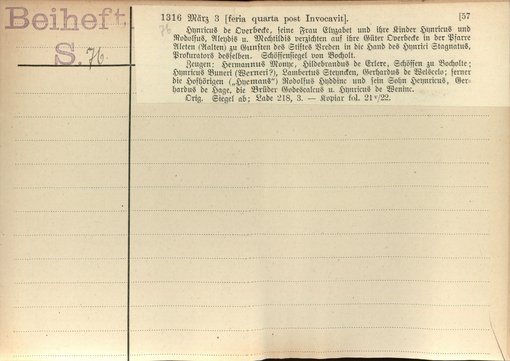 Beiheft
S. 76.
1316 März 3 [feria quarta post Invocavit]. [57
76
Hynricus de Overbecke, seine Frau Elyzabet und ihre Kinder Hynricus und
Rodolfus, Aleydis u. Mechtildis verzichten auf ihre Güter Overbecke in der Pfarre
Aleten (Aalten) zu Gunsten des Stiftes Vreden in die Hand des Hynrici Stagnatus,
Prokurators desselben. Schöffensiegel von Bocholt.
Zeugen: Hermannus Monye, Hildebrandus de Erlere, Schöffen zu Bocholte;
Hynricus Buneri (Werneri?), Lambertus Steyncken, Gerhardus de Welscelo; ferner
die Hofhörigen („Hyemans“) Rodolfus Hyddinc und sein Sohn Heynricus, Ger-
hardus de Hage, die Brüder Godescalcus u. Hynricus de Weninc.
Orig. Siegel ab; Lade 218, 3. — Kopiar fol. 21ᵛ/22.